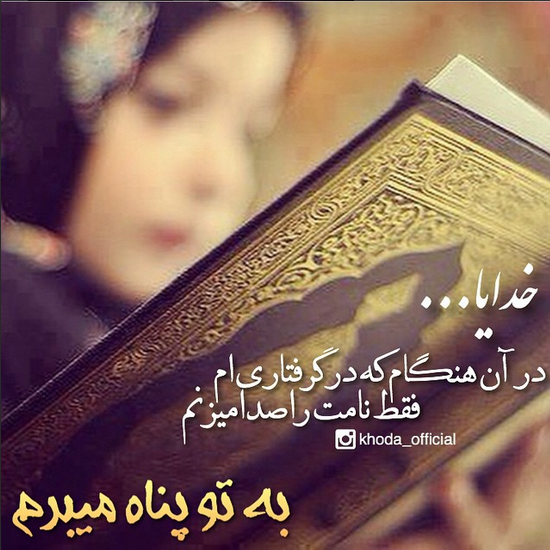 خدایا...
در آن هنگام که در گرفتاری ام
فقط نامت را صدا میزنم
khoda_official
به تو پناه میبرم